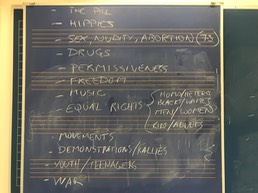 - THE PILL
- HIPPIES
- SEX, NUDITY, ABORTION (73)
- DRUGS
- PERMISSIVENESS
- FREEDOM
- MUSIC
- EQUAL RIGHTS
HOMO/HETERO
BLACK/WHITES
MEN/WOMEN
KIDS/ADULTS
- MOVEMENTS
- DEMONSTRATIONS/RALLIES
- YOUTH/TEENAGERS
- WAR